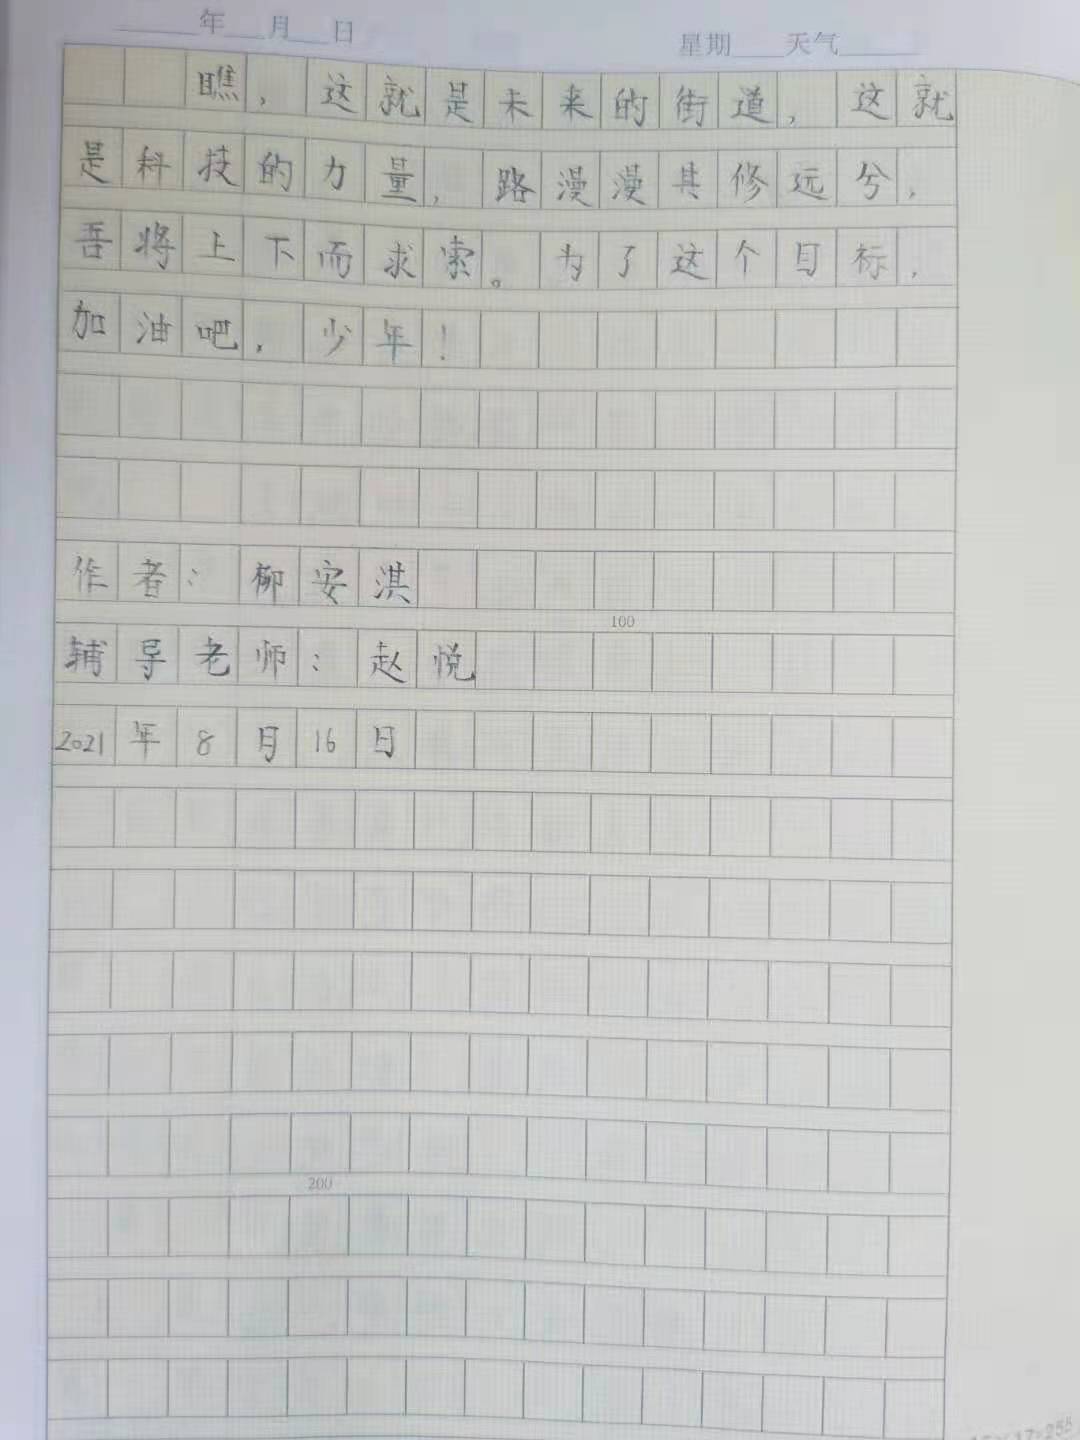 年 月 日 星期 天气
瞧，这就是未来的街道，这就
是科技的力量，路漫漫其修远兮，
吾将上下而求索。为了这个目标，
加油吧，少年！
作者：柳安淇
100
辅导老师：赵悦
2021年8月16日
200